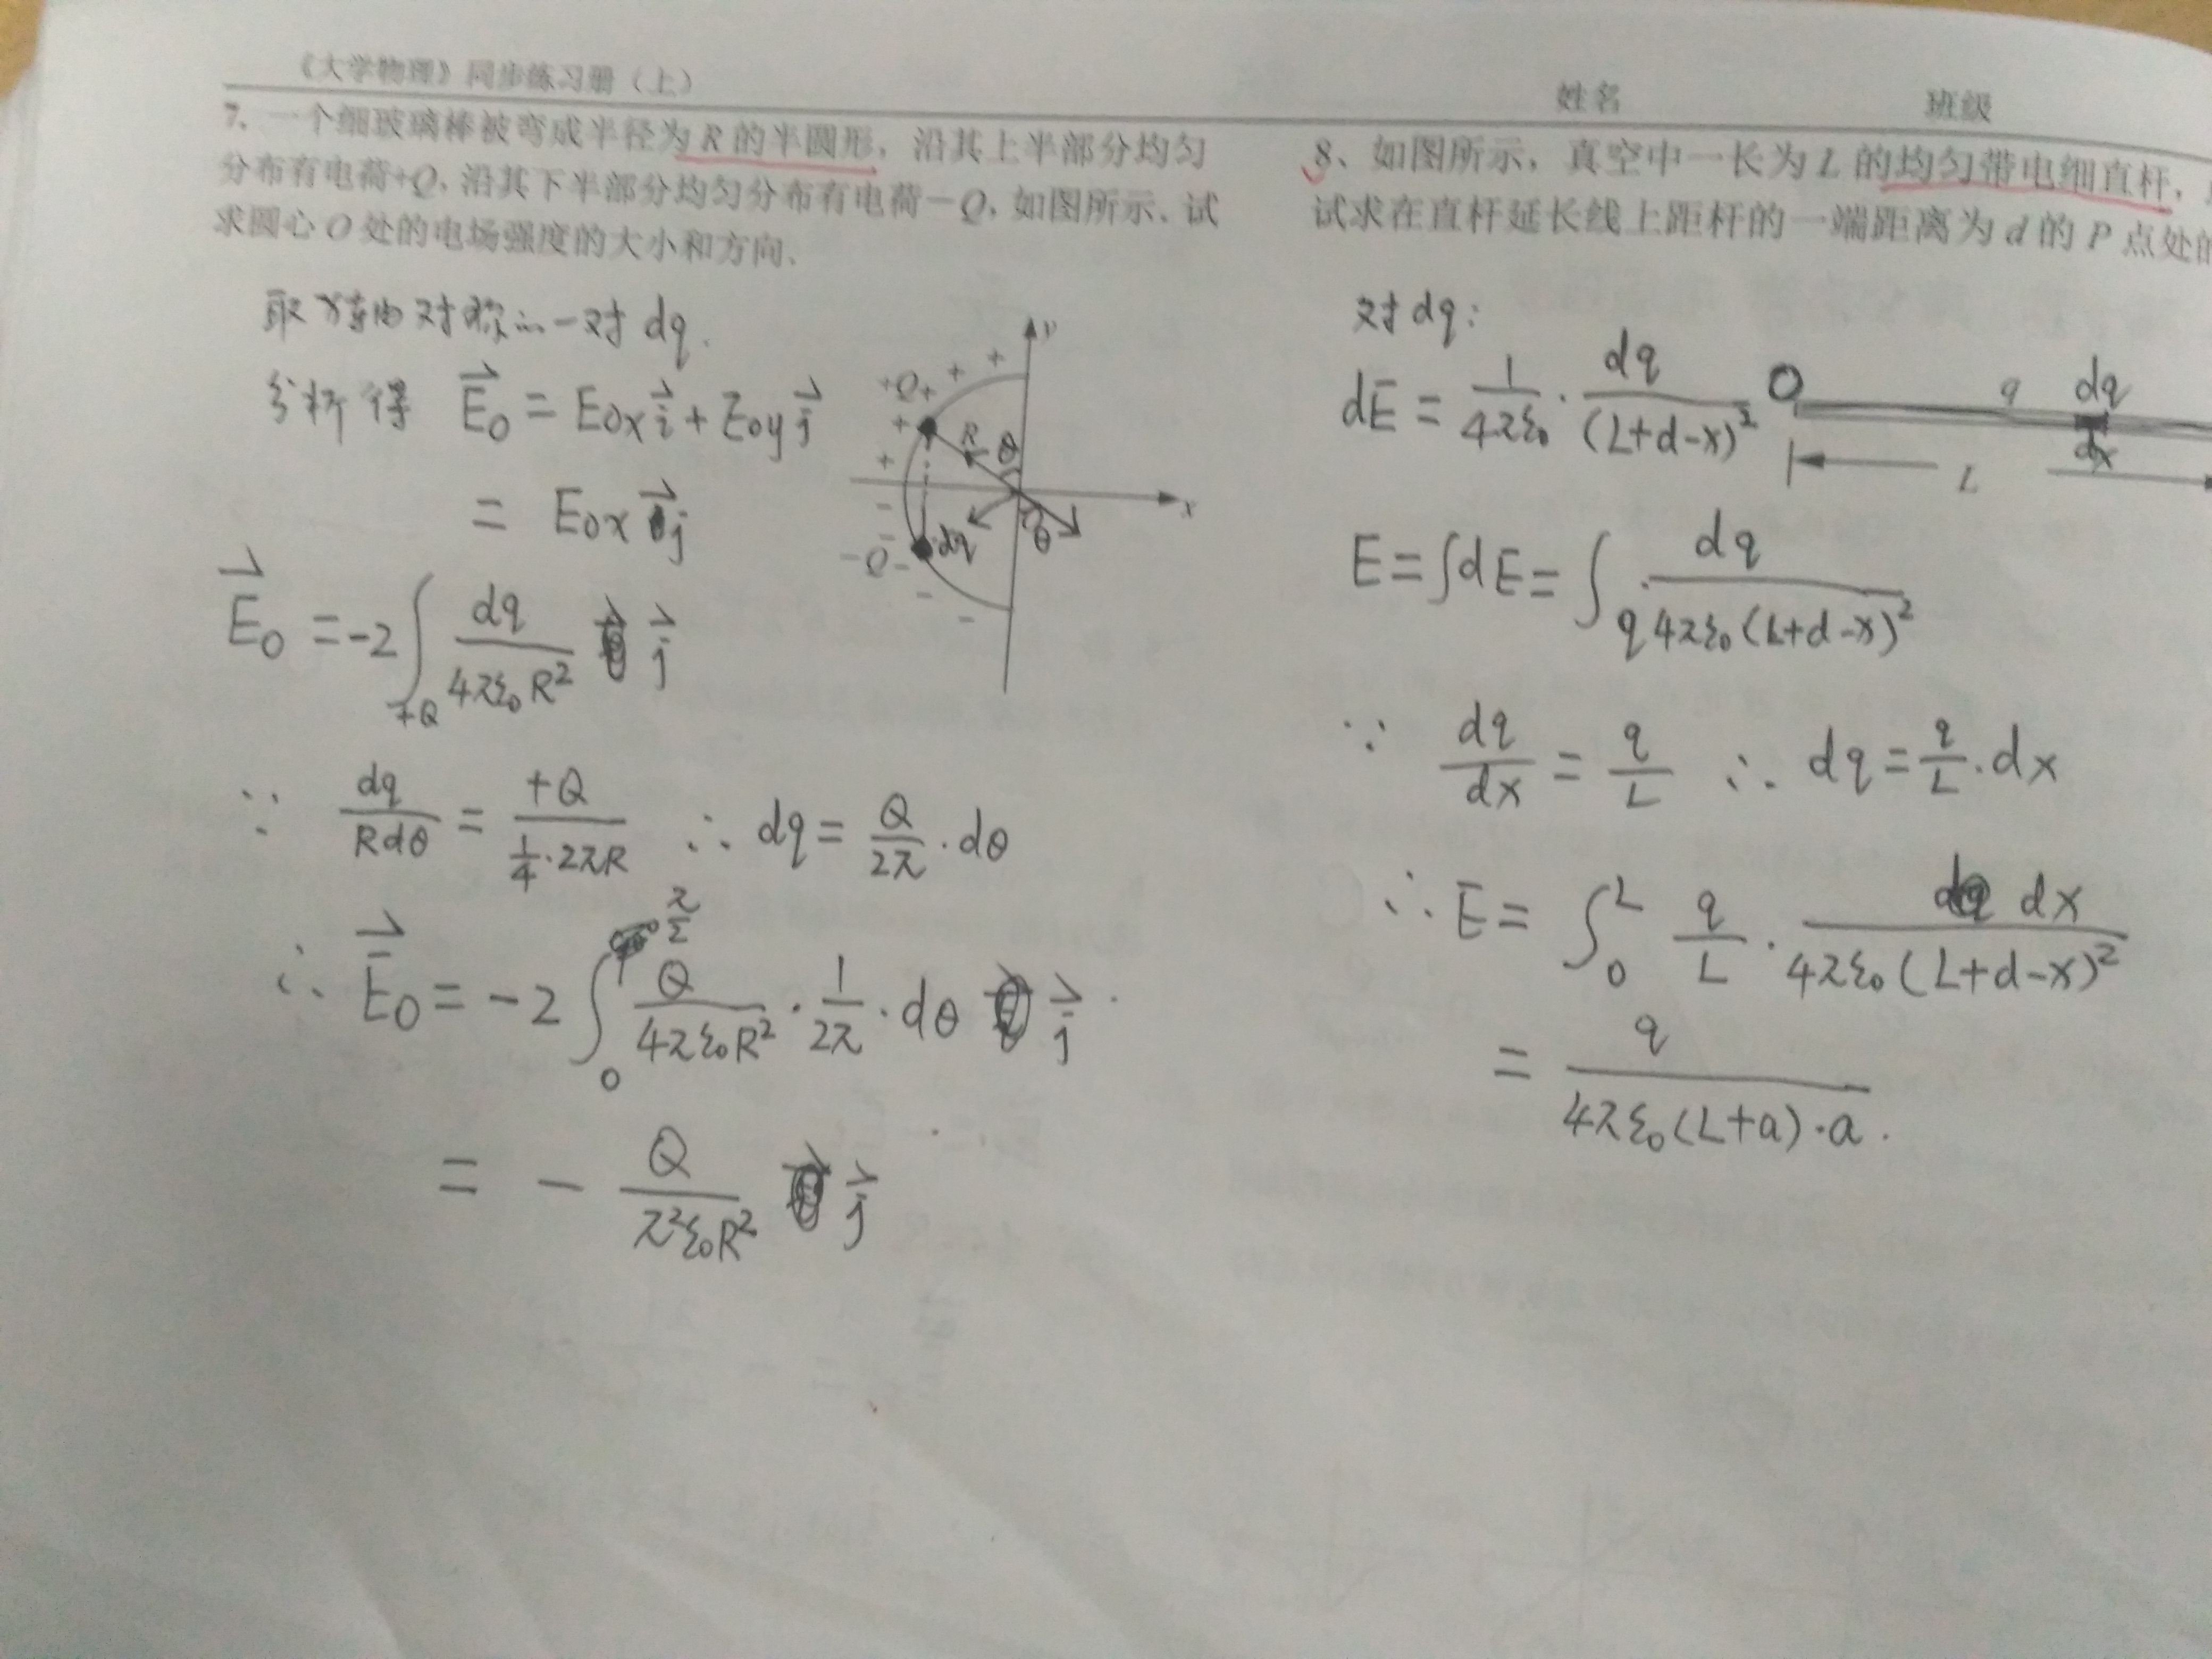 《大学物理》同步练习册（上）
姓名 班级
7. 一个细玻璃棒被弯成半径为R的半圆形，沿其上半部分均匀
分布有电荷+Q，沿其下半部分均匀分布有电荷－Q，如图所示．试
求圆心O处的电场强度的大小和方向．
取x轴对称的一对dq.
分析得 E⃗₀ = E₀ₓi⃗ + E₀yj⃗
= E₀ₓ j⃗
E⃗₀ = -2∫₊Q dq/(4πε₀R²) j⃗
∵ dq/(Rdθ) = +Q/(¼·2πR) ∴ dq = Q/(2π)·dθ
∴ E⃗₀ = -2∫₀^(π/2) Q/(4πε₀R²)·1/(2π)·dθ j⃗
= -Q/(π²ε₀R²) j⃗
y
+Q + + +
+ R θ
+
x
- -
-Q - dq θ
- -
8、如图所示，真空中一长为L的均匀带电细直杆，
试求在直杆延长线上距杆的一端距离为d的P点处的
对dq:
dE = 1/(4πε₀)·dq/(L+d-x)²
O q dq
dx
L
E = ∫dE = ∫q dq/(4πε₀(L+d-x)²)
∵ dq/dx = q/L ∴ dq = q/L·dx
∴ E = ∫₀^L q/L·dx/(4πε₀(L+d-x)²)
= q/(4πε₀(L+a)·a).